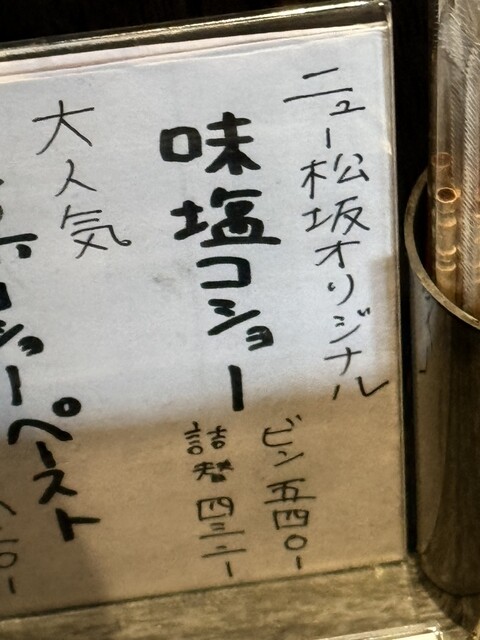 ニュー松坂オリジナル
味塩コショー
ビン五四〇ー
詰替四三二ー
大人気
コショーペースト